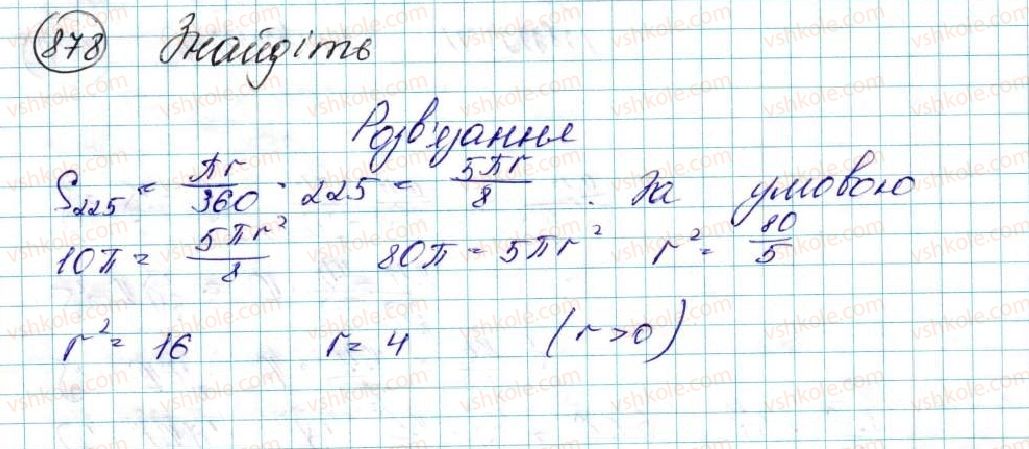 878 Знайдіть
Розв'язання
S₂₂₅ = πr/360 · 225 = 5πr/8 . За умовою
10π = 5πr²/8 80π = 5πr² r² = 80/5
r² = 16 r = 4 (r > 0)